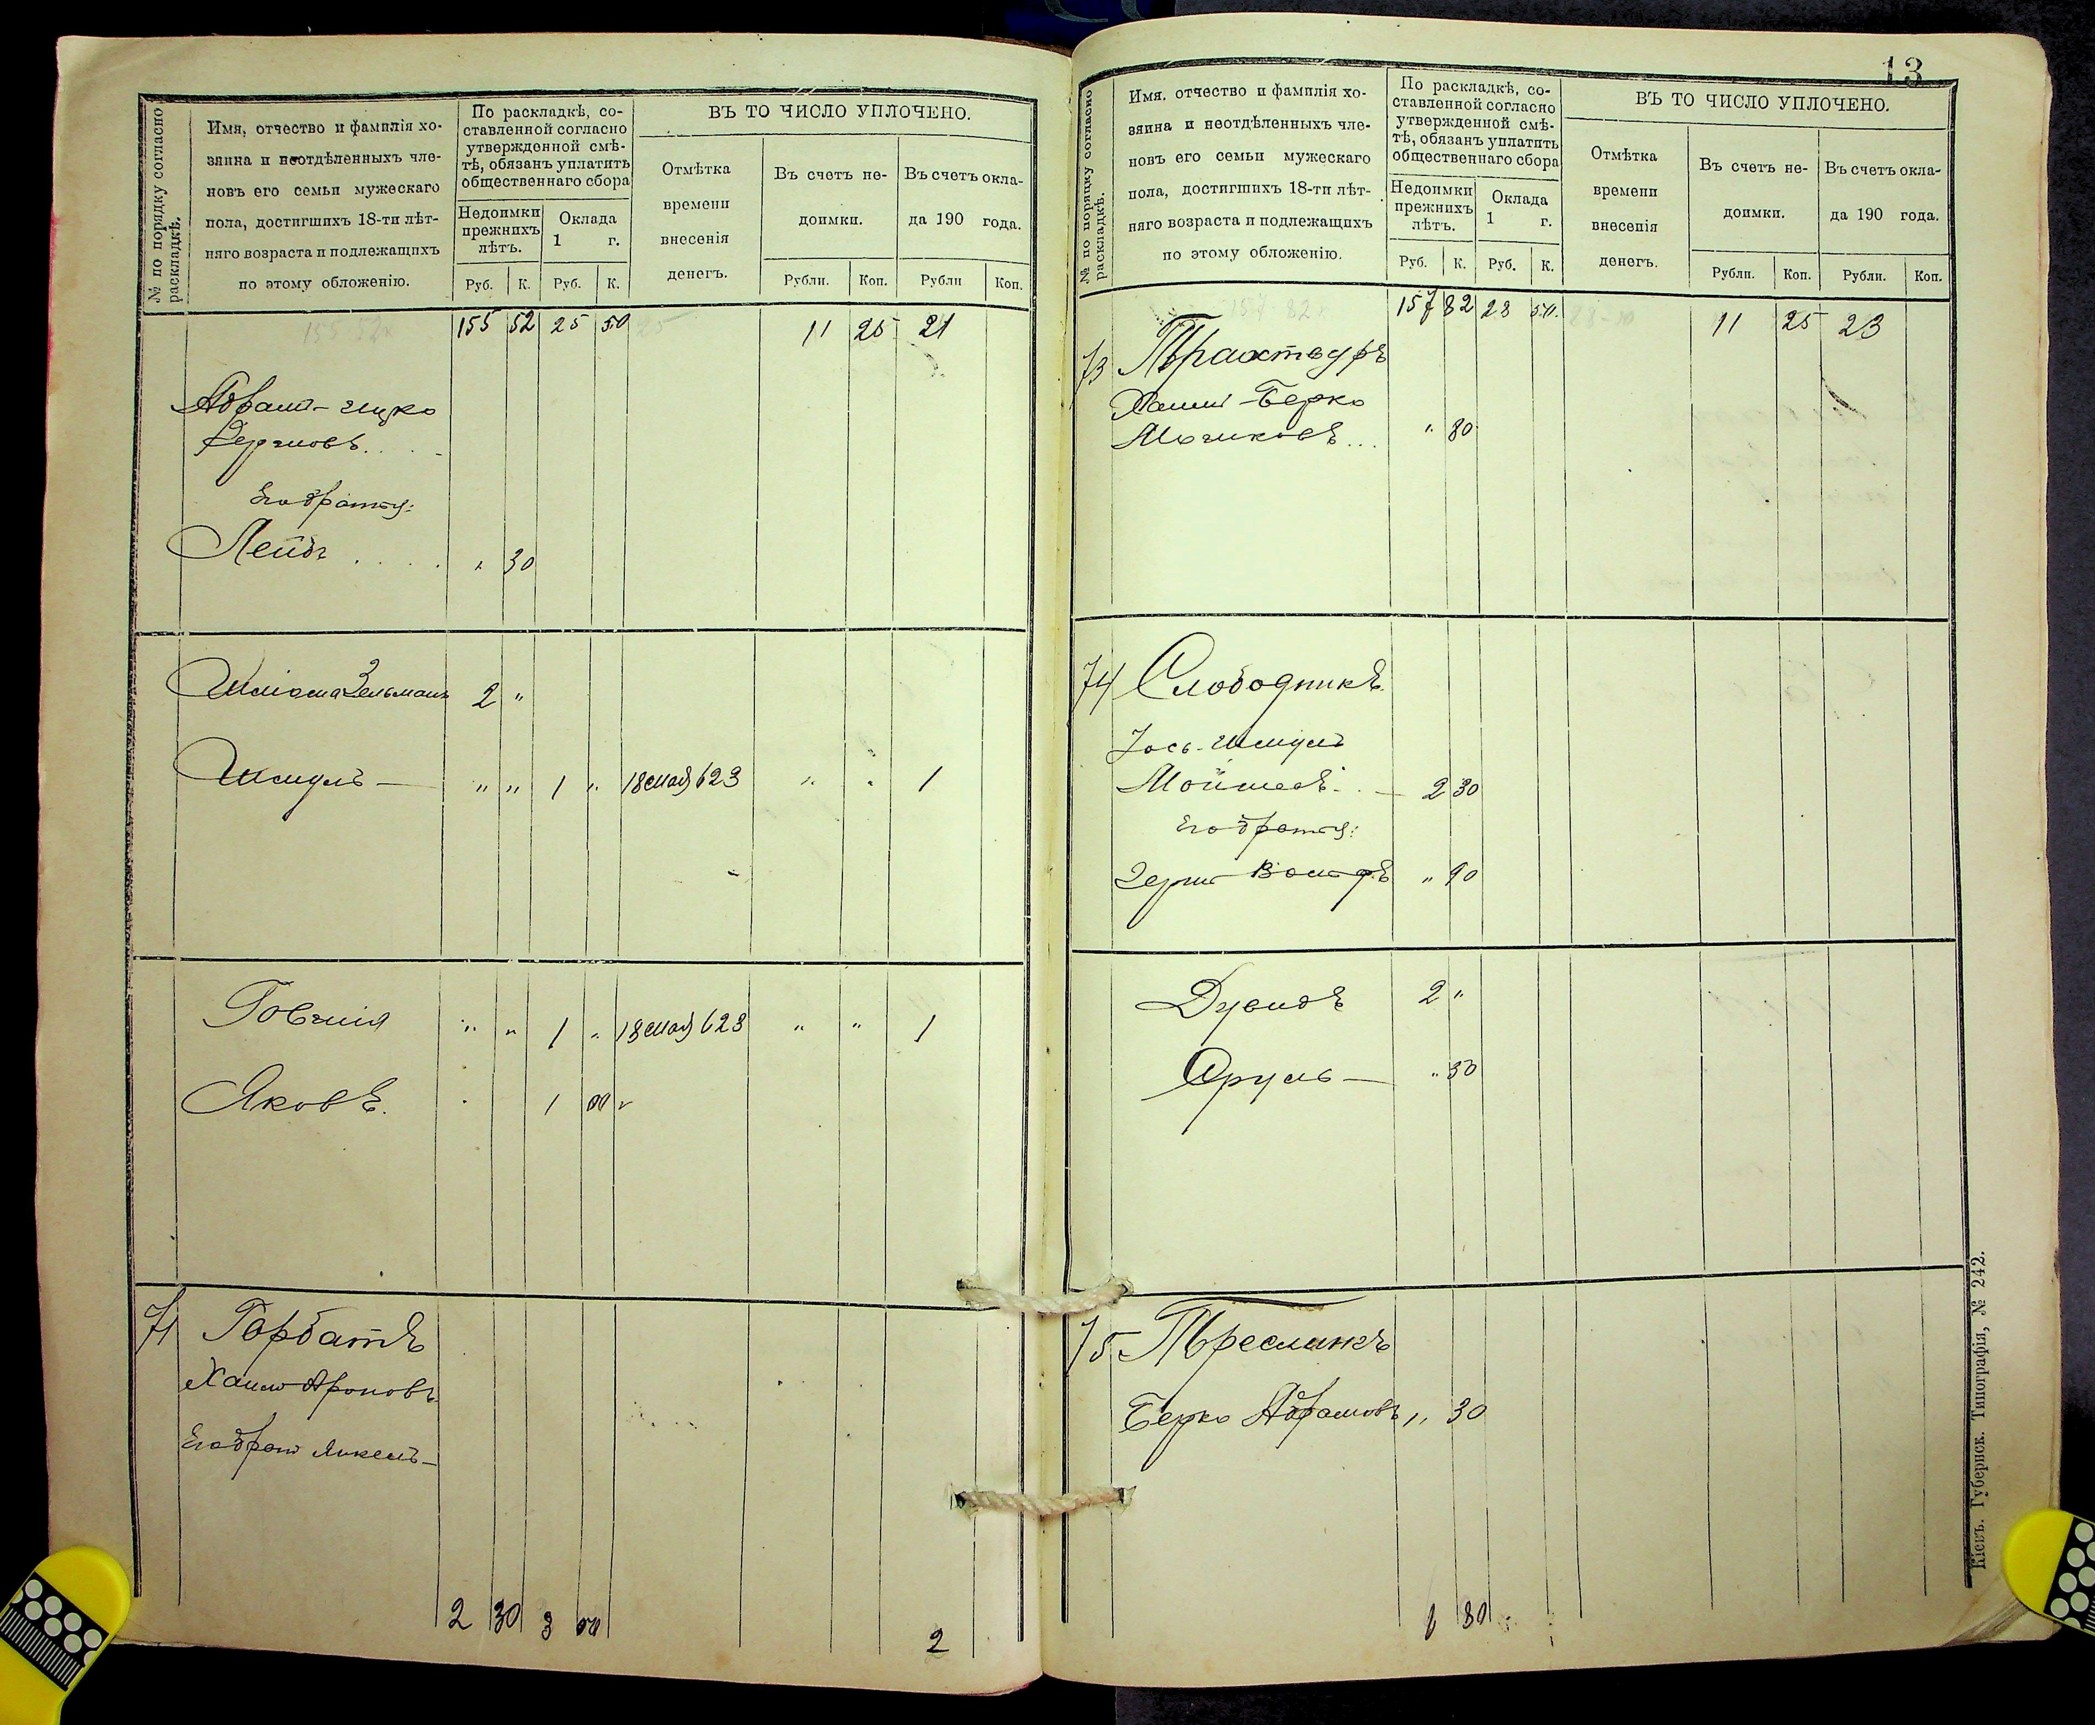 № по порядку согласно раскладкѣ.
Имя, отчество и фамилія хо-
зяина и неотдѣленныхъ чле-
новъ его семьи мужескаго
пола, достигшихъ 18-ти лѣт-
няго возраста и подлежащихъ
по этому обложенію.
По раскладкѣ, со-
ставленной согласно
утвержденной смѣ-
тѣ, обязанъ уплатить
общественнаго сбора
Недоимки прежнихъ лѣтъ.
Оклада 1 г.
Руб. К. Руб. К.
ВЪ ТО ЧИСЛО УПЛОЧЕНО.
Отмѣтка
времени
внесенія
денегъ.
Въ счетъ не-
доимки.
Въ счетъ окла-
да 190 года.
Рубли. Коп. Рубли Коп.
155 52 25 50 11 25 21
Абрамъ-Ицко
Его братья:
Лейба . . . . „ 30
Зельманъ 2 „
Шмуль — „ „ 1 „ 18 мая 623 „ „ 1
Товгія „ „ 1 „ 18 мая 623 „ „ 1
Яковъ. 1 00
71 Горбатъ
Хаимъ Ароновъ
Его братъ Янкель —
2 30 3 00 2
13
№ по порядку согласно раскладкѣ.
Имя, отчество и фамилія хо-
зяина и неотдѣленныхъ чле-
новъ его семьи мужескаго
пола, достигшихъ 18-ти лѣт-
няго возраста и подлежащихъ
по этому обложенію.
По раскладкѣ, со-
ставленной согласно
утвержденной смѣ-
тѣ, обязанъ уплатить
общественнаго сбора
Недоимки прежнихъ лѣтъ.
Оклада 1 г.
Руб. К. Руб. К.
ВЪ ТО ЧИСЛО УПЛОЧЕНО.
Отмѣтка
времени
внесенія
денегъ.
Въ счетъ не-
доимки.
Въ счетъ окла-
да 190 года.
Рубли. Коп. Рубли. Коп.
157 82 28 50 11 25 23
73 Трахтвуръ
Хаимъ-Берко
„ 80
74 Слободникъ
Іось-Шмуль
Мошковъ . . — 2 30
Его братья:
Герш Вольфъ „ 90
Дувидъ 2 „
Сруль — „ 30
75 Преслинкъ
Берко Абрамовъ „ 30
80
Кіевъ. Губернск. Типографія, № 242.